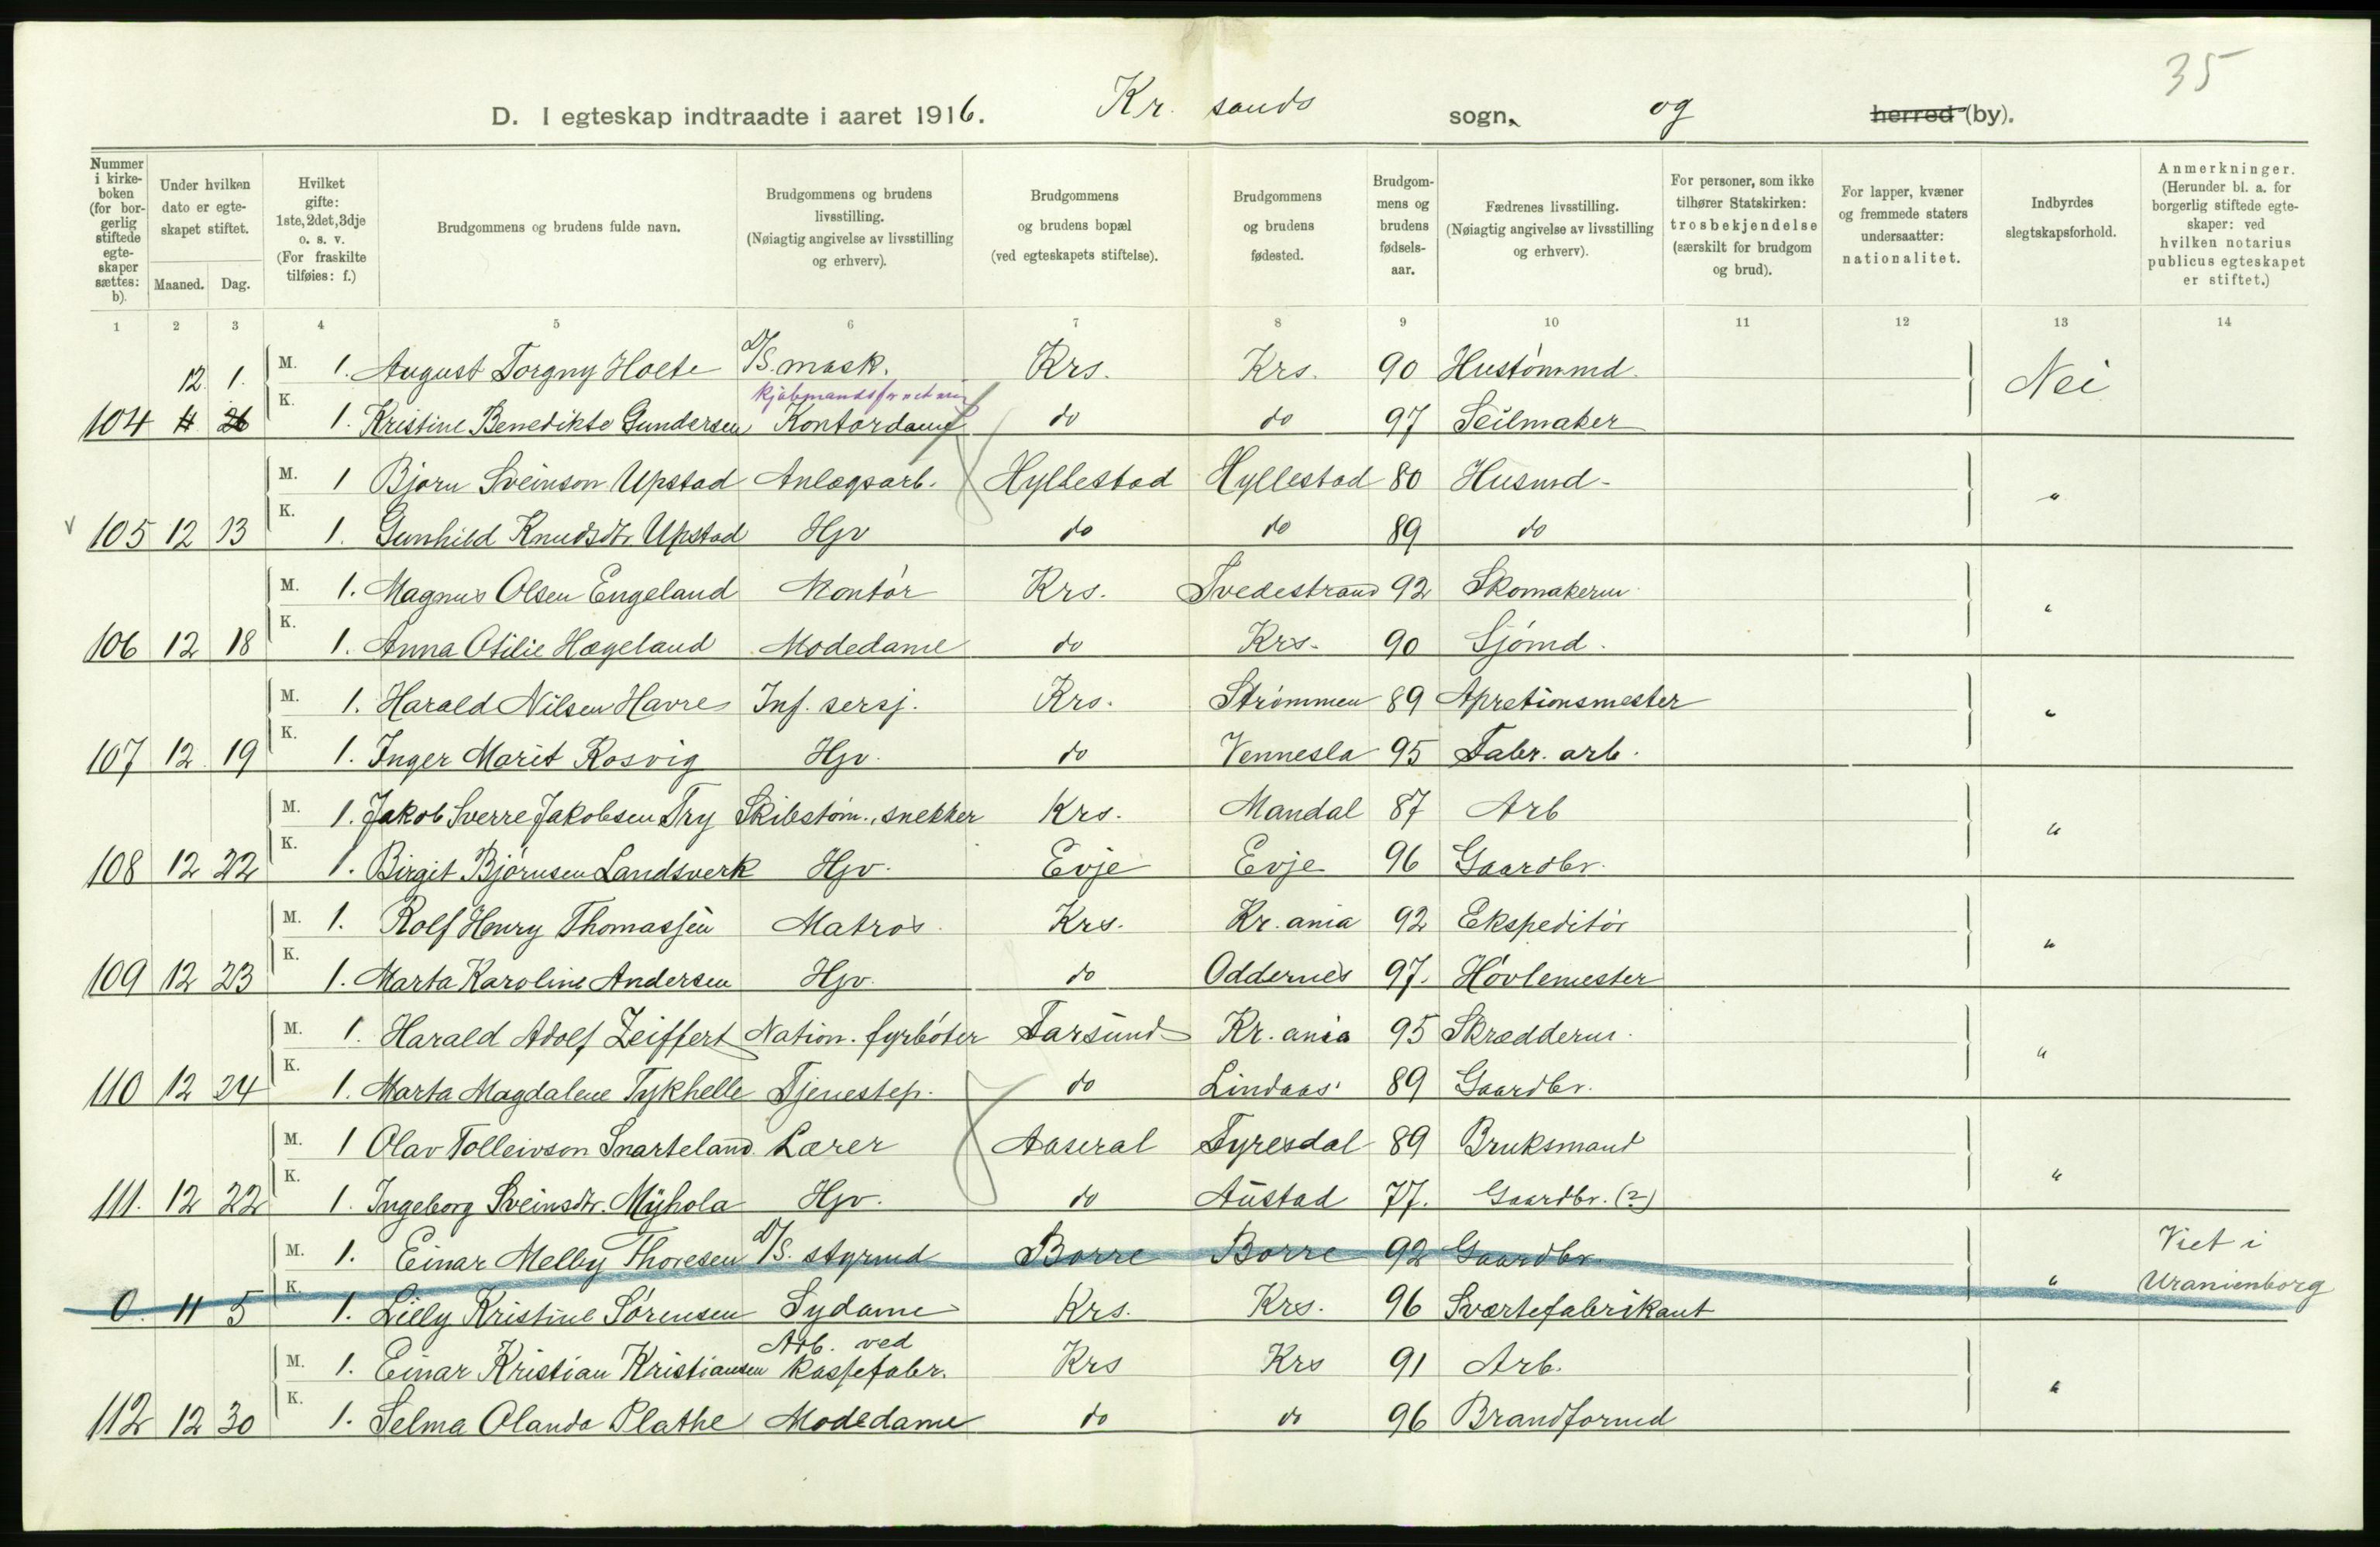 35
D. I egteskap indtraadte i aaret 1916. Kr. sands sogn og herred (by).
Nummer i kirkeboken (for borgerlig stiftede egteskaper sættes: b). Under hvilken dato er egteskapet stiftet. Maaned. Dag. Hvilket gifte: 1ste, 2det, 3dje o. s. v. (For fraskilte tilføies: f.) Brudgommens og brudens fulde navn. Brudgommens og brudens livsstilling. (Nøiagtig angivelse av livsstilling og erhverv). Brudgommens og brudens bopæl (ved egteskapets stiftelse). Brudgommens og brudens fødested. Brudgommens og brudens fødselsaar. Fædrenes livsstilling. (Nøiagtig angivelse av livsstilling og erhverv). For personer, som ikke tilhører Statskirken: trosbekjendelse (særskilt for brudgom og brud). For lapper, kvæner og fremmede staters undersaatter: nationalitet. Indbyrdes slegtskapsforhold. Anmerkninger. (Herunder bl. a. for borgerlig stiftede egteskaper: ved hvilken notarius publicus egteskapet er stiftet.)
1 2 3 4 5 6 7 8 9 10 11 12 13 14
12. 1. M. 1. August Torgny Holte D/S. mask. Krs. Krs. 90 Hustømmd. Nei
kjøbmandsforretning
104 11 26 K. 1. Kristine Benedikte Gundersen Kontordame do do 97 Seilmaker
M. 1 Bjørn Sveinson Upstad Anlægsarb. Hyllestad Hyllestad 80 Husmd - "
v 105 12 13 K. 1. Gunhild Knudsdtr Upstad Hjv do do 89 do
M. 1. Magnus Olsen Engeland Montør Krs. Tvedestrand 92 Skomakerm. "
106 12 18 K. 1. Anna Otilie Hægeland Modedame do Krs. 90 Sjømd.
M. 1. Harald Nilsen Havre Inf. sersj. Krs. Strømmen 89 Apretionsmester "
107 12. 19 K. 1. Inger Marit Rosvig Hjv. do Vennesla 95 Fabr. arb.
M. 1. Jakob Sverre Jakobsen Try Skibstøm., snekker Krs. Mandal 87 Arb "
108 12 22 K. 1. Birgit Bjørnsen Landsverk Hjv. Evje Evje 96 Gaardbr.
M. 1. Rolf Henry Thomassen Matros. Krs. Kr.ania 92 Ekspeditør "
109 12 23 K. 1. Marta Karoline Andersen Hjv. do Oddernes 97. Høvlemester
M. 1. Harald Adolf Zeiffert Nation. fyrbøter Farsund Kr.ania 95 Skrædderm. "
110 12 24 K. 1. Marta Magdalene Tykhelle Tjenestep. do Lindaas 89 Gaardbr.
M. 1 Olav Tolleivson Snarteland Lærer Aaseral Fyresdal 89 Bruksmand "
111. 12 22 K. 1. Ingeborg Sveinsdtr. Myhola Hjv. do Austad 77. Gaardbr. (?)
M. 1. Einar Melby Thoresen D/S. styrmd Borre Borre 92 Gaardbr. Viet i
0. 11 5 K. 1. Lilly Kristine Sørensen Sydame Krs. Krs. 96 Sværtefabrikant " Uranienborg
Arb. ved
M. 1. Einar Kristian Kristiansen kassefabr. Krs Krs 91 Arb. "
112 12 30 K. 1. Selma Olanda Plathe Modedame do do 96 Brandformd